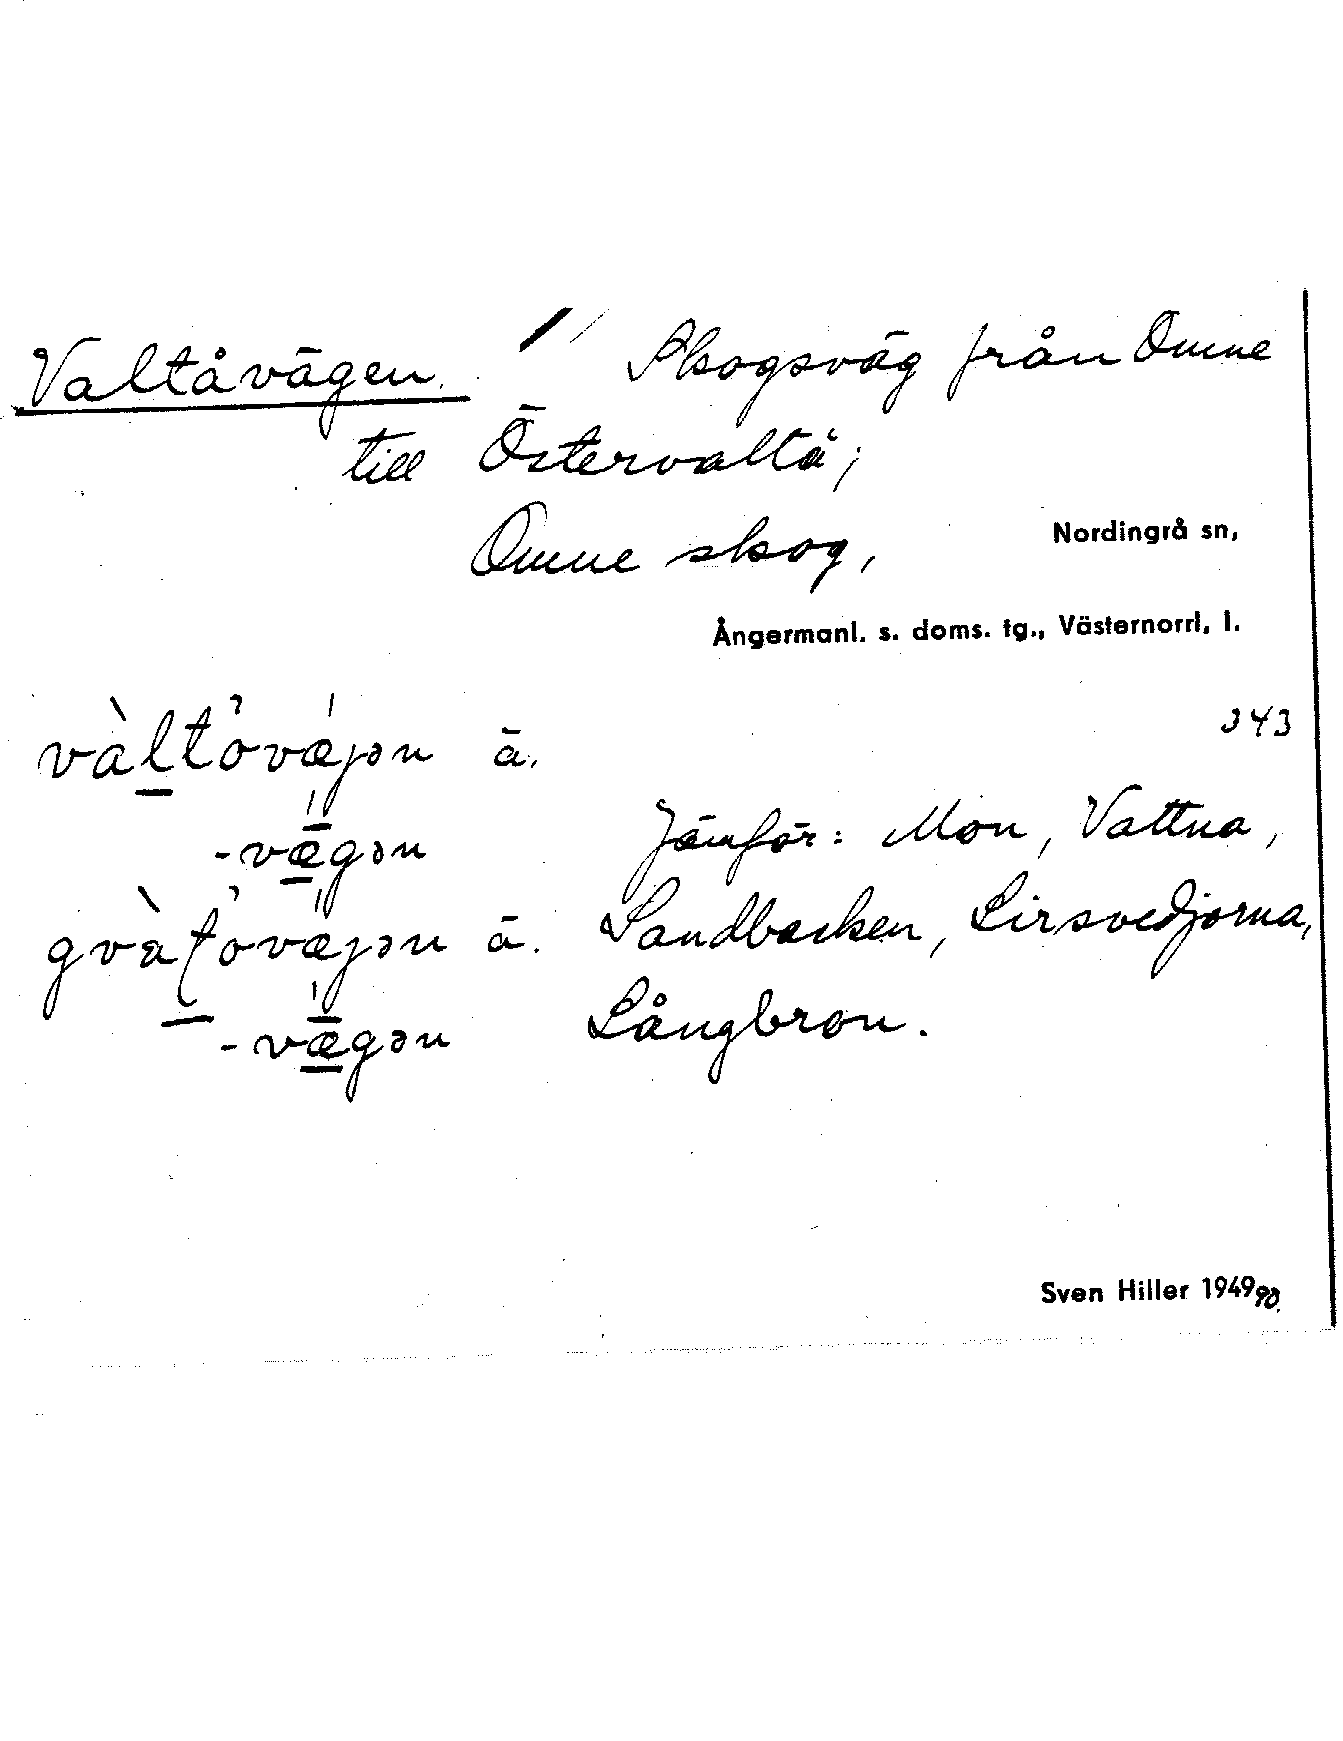 Valtåvägen. Skogsväg från Omne
till Östervaltå;
Omne skog,
Nordingrå sn,
Ångermanl. s. doms. tg., Västernorrl. l.
343
vàltovæjən ä.
-vægən
Jämför: Mon, Vattna,
gvàƭovæjən ä. Sandbacken, Lirsvedjorna,
-vægən Långbron.
Sven Hiller 1949 90.